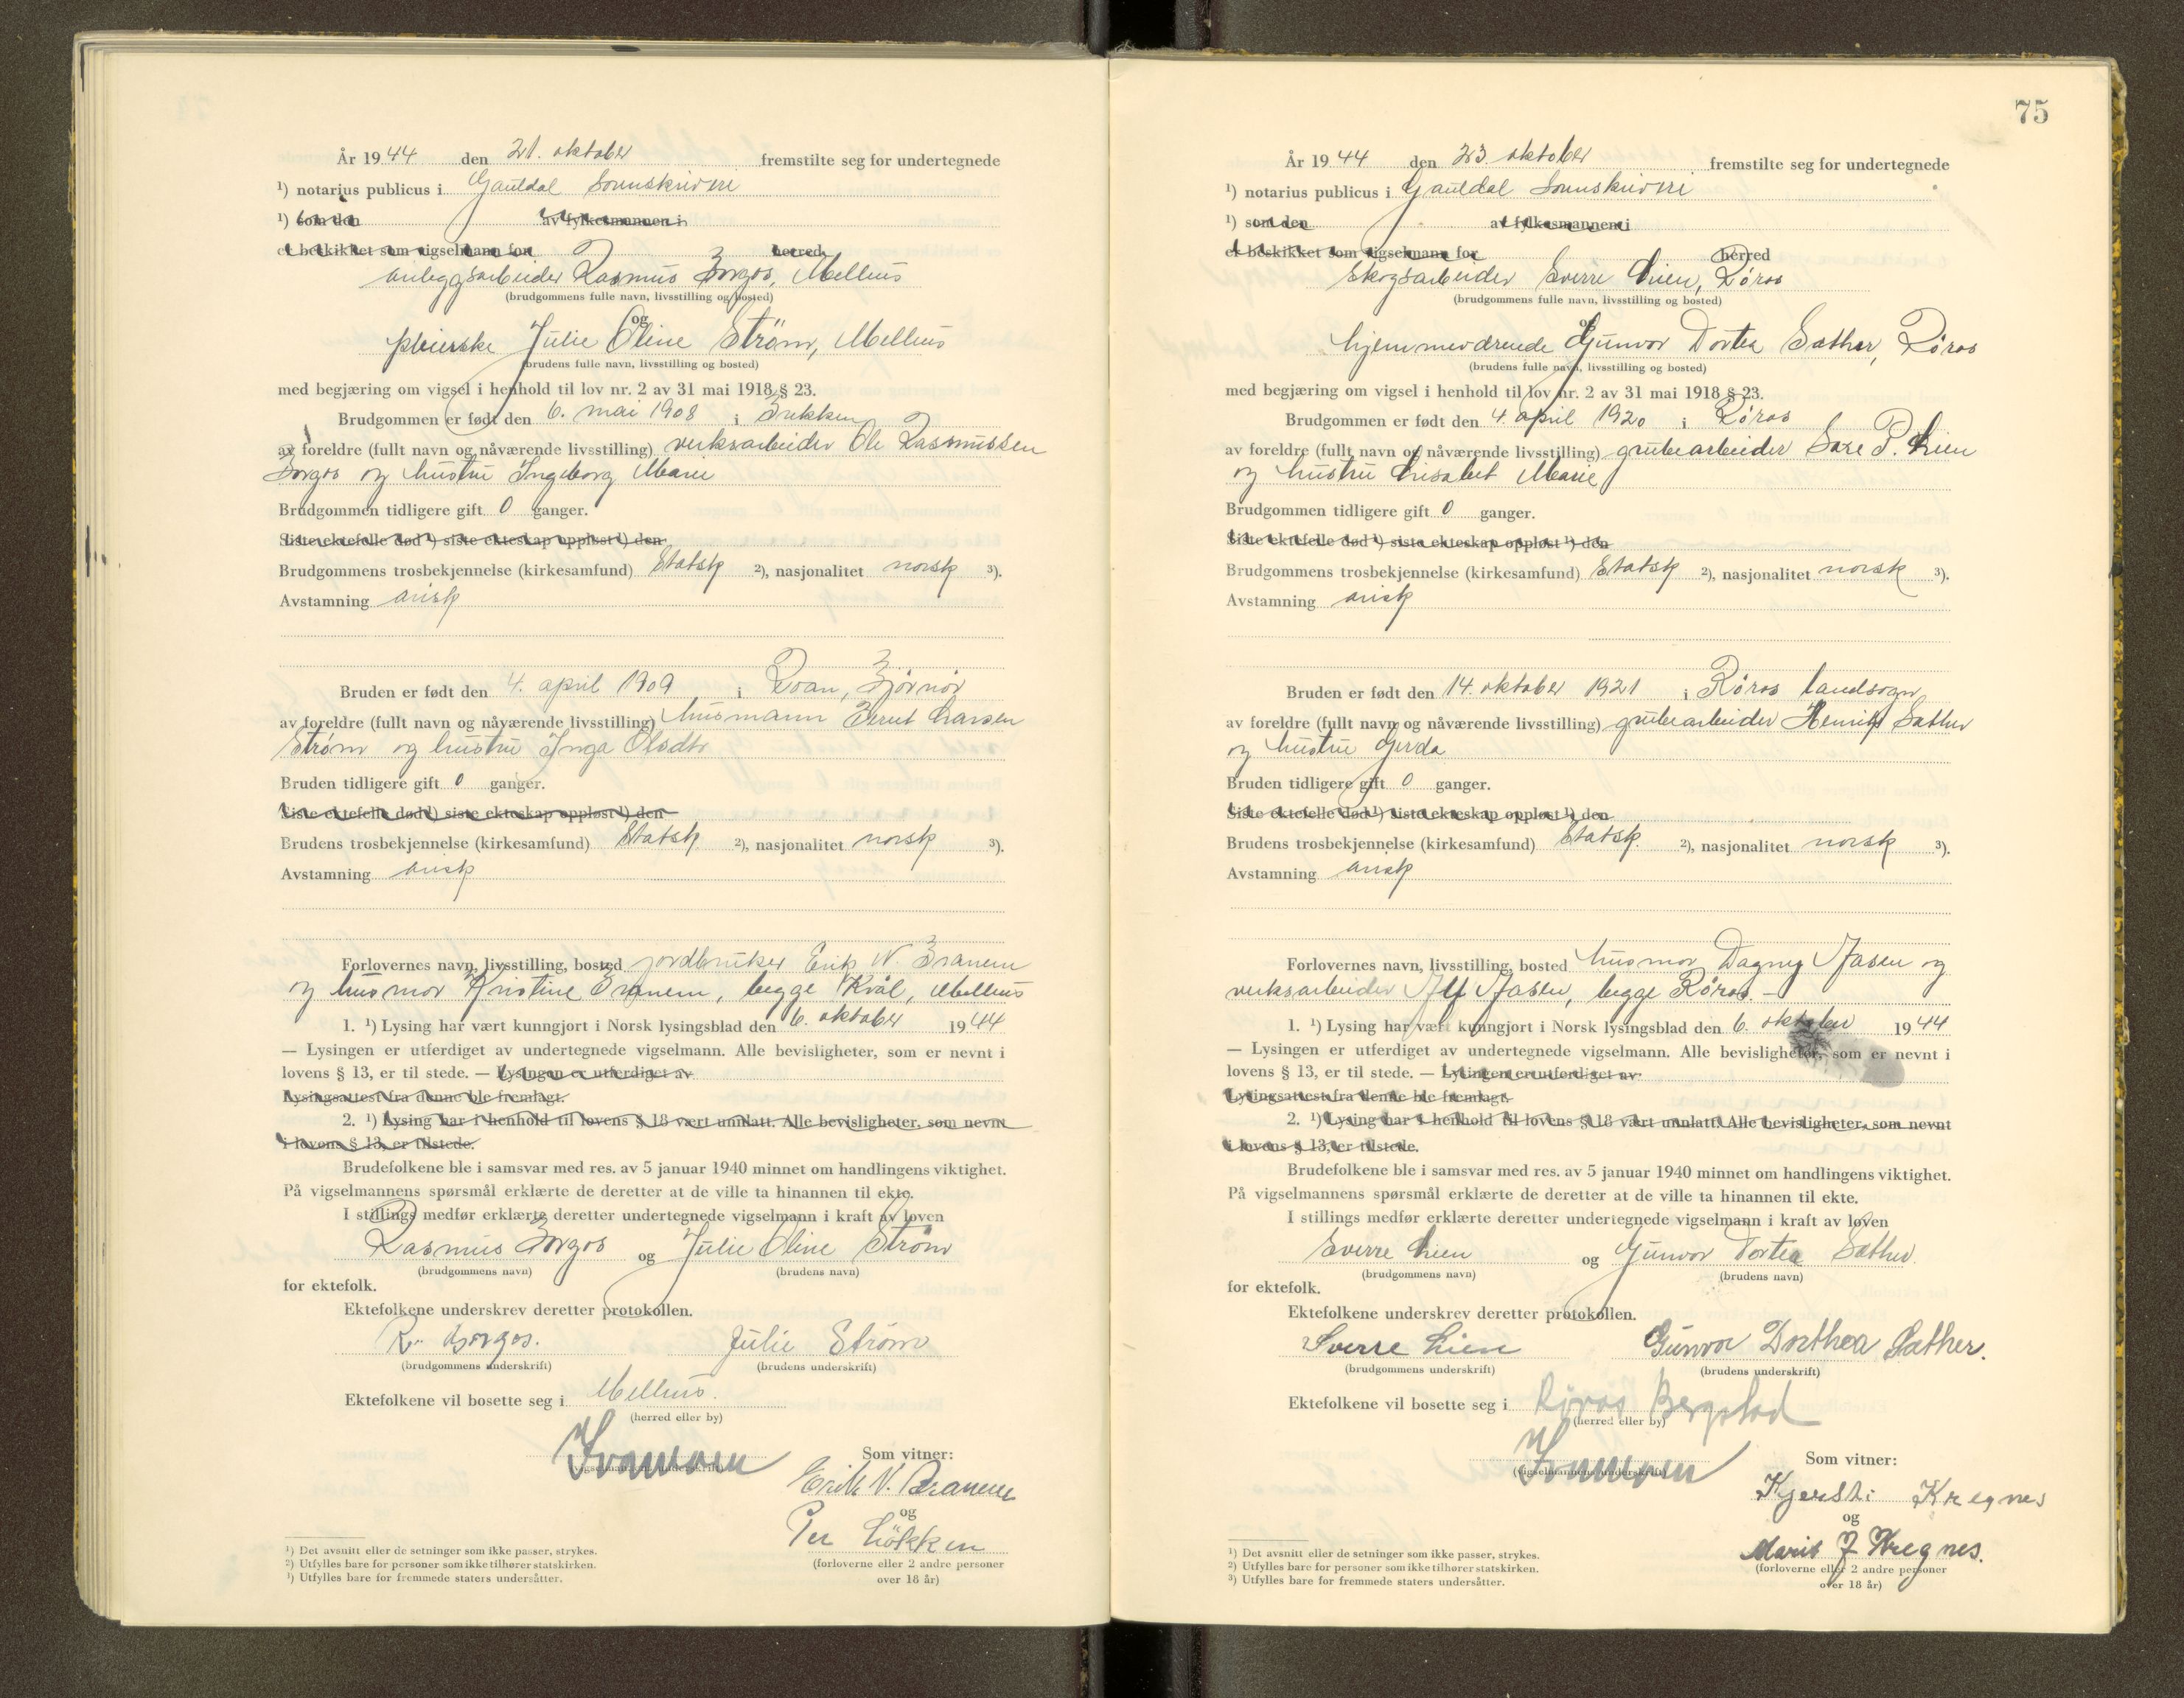 År 1944 den 21. oktober fremstilte seg for undertegnede
¹) notarius publicus i Gauldal Sorenskriveri
¹) som den av fylkesmannen i
er beskikket som vigselmann for herred
anleggsarbeider Rasmus Borgos, Melhus
(brudgommens fulle navn, livsstilling og bosted)
og
pleierske Julie Oline Strøm, Melhus
(brudens fulle navn, livsstilling og bosted)
med begjæring om vigsel i henhold til lov nr. 2 av 31 mai 1918 § 23.
Brudgommen er født den 6. mai 1908 i Brekken
av foreldre (fullt navn og nåværende livsstilling) verksarbeider Ole Rasmussen
Borgos og hustru Ingeborg Marie
Brudgommen tidligere gift 0 ganger.
Siste ektefelle død ¹) siste ekteskap oppløst ¹) den
Brudgommens trosbekjennelse (kirkesamfund) Statsk ²), nasjonalitet norsk ³).
Avstamning arisk
Bruden er født den 4. april 1909 i Roan, Bjørnør
av foreldre (fullt navn og nåværende livsstilling) husmann Bernt Larsen
Strøm og hustru Inga Olsdtr
Bruden tidligere gift 0 ganger.
Siste ektefelle død ¹) siste ekteskap oppløst ¹) den
Brudens trosbekjennelse (kirkesamfund) Statsk ²), nasjonalitet norsk ³).
Avstamning arisk
Forlovernes navn, livsstilling, bosted jordbruker Erik N. Branem
og husmor Kristine Branem, begge Kvål, Melhus
1. ¹) Lysing har vært kunngjort i Norsk lysingsblad den 6. oktober 1944
— Lysingen er utferdiget av undertegnede vigselmann. Alle bevisligheter, som er nevnt i
lovens § 13, er til stede. — Lysingen er utferdiget av
Lysingsattest fra denne ble fremlagt.
2. ¹) Lysing har i henhold til lovens § 18 vært unnlatt. Alle bevisligheter, som nevnt
i lovens § 13, er tilstede.
Brudefolkene ble i samsvar med res. av 5 januar 1940 minnet om handlingens viktighet.
På vigselmannens spørsmål erklærte de deretter at de ville ta hinannen til ekte.
I stillings medfør erklærte deretter undertegnede vigselmann i kraft av loven
Rasmus Borgos og Julie Oline Strøm
(brudgommens navn) (brudens navn)
for ektefolk.
Ektefolkene underskrev deretter protokollen.
R. Borgos. Julie Strøm
(brudgommens underskrift) (brudens underskrift)
Ektefolkene vil bosette seg i Melhus.
(herred eller by)
(vigselmannens underskrift)
Som vitner:
Erik N. Branem
og
Per Løkken
(forloverne eller 2 andre personer
over 18 år)
¹) Det avsnitt eller de setninger som ikke passer, strykes.
²) Utfylles bare for personer som ikke tilhører statskirken.
³) Utfylles bare for fremmede staters undersåtter.
75
År 1944 den 23. oktober fremstilte seg for undertegnede
¹) notarius publicus i Gauldal Sorenskriveri
¹) som den av fylkesmannen i
er beskikket som vigselmann for herred
Skogsarbeider Sverre Lien, Røros
(brudgommens fulle navn, livsstilling og bosted)
og
hjemmeværende Gunvor Dortea Sæther, Røros
(brudens fulle navn, livsstilling og bosted)
med begjæring om vigsel i henhold til lov nr. 2 av 31 mai 1918 § 23.
Brudgommen er født den 4. april 1920 i Røros
av foreldre (fullt navn og nåværende livsstilling) grubearbeider P. Lien
og hustru Lisabet Marie
Brudgommen tidligere gift 0 ganger.
Siste ektefelle død ¹) siste ekteskap oppløst ¹) den
Brudgommens trosbekjennelse (kirkesamfund) Statsk ²), nasjonalitet norsk ³).
Avstamning arisk
Bruden er født den 14. oktober 1921 i Røros landsogn
av foreldre (fullt navn og nåværende livsstilling) grubearbeider Henrik Sæther
og hustru Gerda
Bruden tidligere gift 0 ganger.
Siste ektefelle død ¹) siste ekteskap oppløst ¹) den
Brudens trosbekjennelse (kirkesamfund) Statsk. ²), nasjonalitet norsk ³).
Avstamning arisk
Forlovernes navn, livsstilling, bosted husmor Dagny Aasen og
verksarbeider Alf Aasen, begge Røros. —
1. ¹) Lysing har vært kunngjort i Norsk lysingsblad den 6. oktober 1944
— Lysingen er utferdiget av undertegnede vigselmann. Alle bevisligheter, som er nevnt i
lovens § 13, er til stede. — Lysingen er utferdiget av
Lysingsattest fra denne ble fremlagt.
2. ¹) Lysing har i henhold til lovens § 18 vært unnlatt. Alle bevisligheter, som nevnt
i lovens § 13, er tilstede.
Brudefolkene ble i samsvar med res. av 5 januar 1940 minnet om handlingens viktighet.
På vigselmannens spørsmål erklærte de deretter at de ville ta hinannen til ekte.
I stillings medfør erklærte deretter undertegnede vigselmann i kraft av loven
Sverre Lien og Gunvor Dortea Sæther
(brudgommens navn) (brudens navn)
for ektefolk.
Ektefolkene underskrev deretter protokollen.
Sverre Lien Gunvor Dorthea Sæther.
(brudgommens underskrift) (brudens underskrift)
Ektefolkene vil bosette seg i Røros Bergstad
(herred eller by)
(vigselmannens underskrift)
Som vitner:
Kjersti Kregnes
og
Marit J Kregnes.
(forloverne eller 2 andre personer
over 18 år)
¹) Det avsnitt eller de setninger som ikke passer, strykes.
²) Utfylles bare for personer som ikke tilhører statskirken.
³) Utfylles bare for fremmede staters undersåtter.